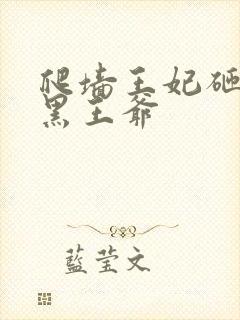 爬墙王妃砸
黑王爷
藍莹文